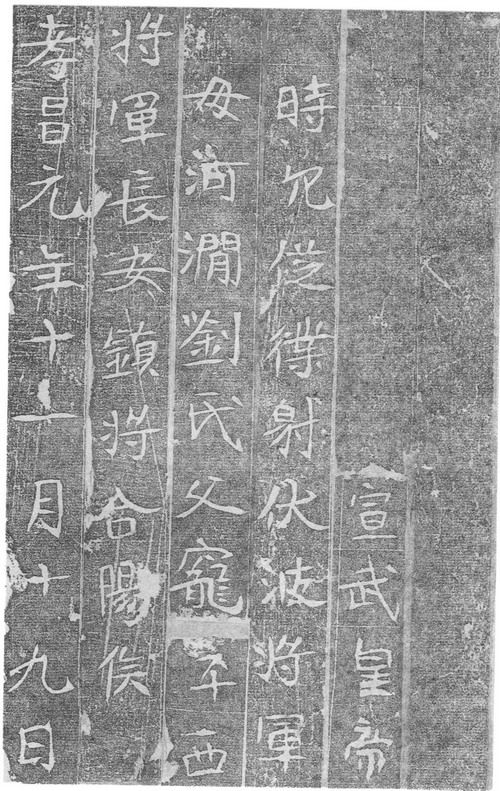 宣武皇帝
時兄從僕射伏波將軍
母河澗劉氏父寵平西
將軍長安鎮將合陽侯
孝昌元年十一月十九日